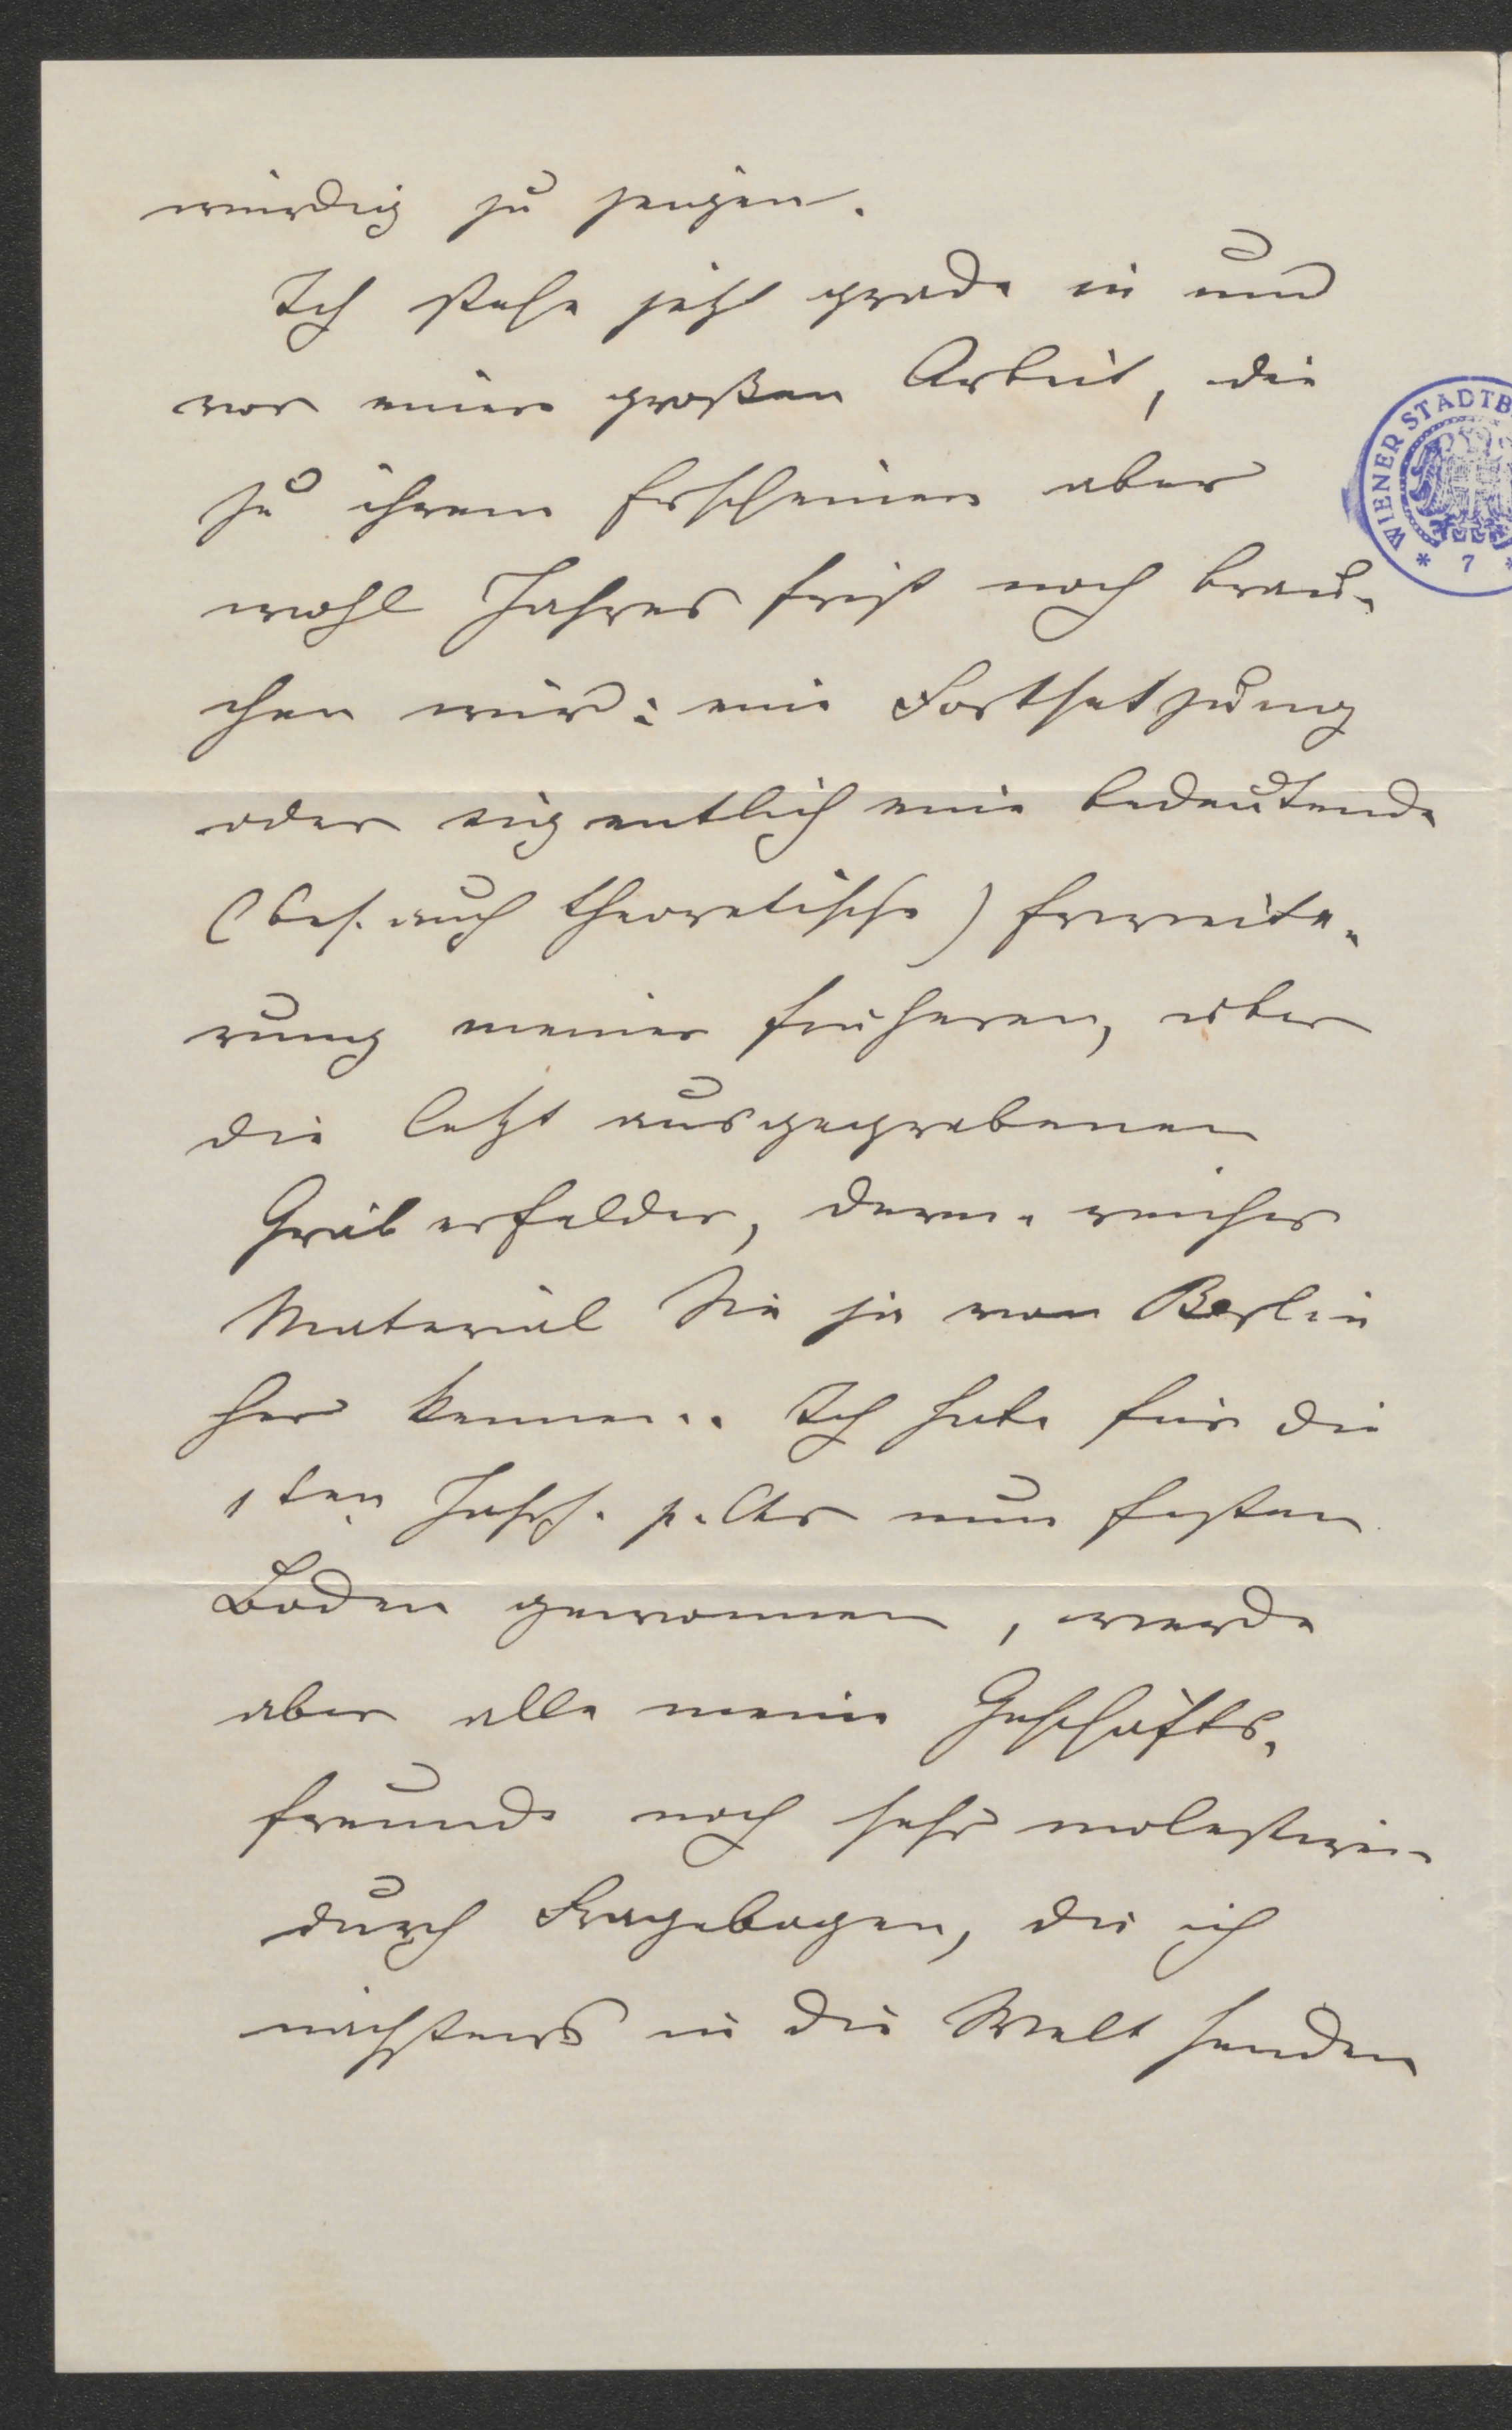 würdig zu zeigen.
Ich stehe jetzt grade in und
vor einer großen Arbeit, die
zu ihrem Erscheinen aber
wohl Jahres frist noch brau-
chen wird: eine Fortsetzung
oder eigentlich eine bedeutende
(bes. auch theoretische) Erweite-
rung meiner früheren, über
die letzt ausgegrabenen
Gräberfelder, deren reiches
Material Sie ja von Berlin
her kennen. Ich habe für die
1ten Jahrh. p. Chr nun festen
Boden gewonnen, werde
aber alle meine Geschäfts-
freunde noch sehr molestiren
durch Fragebogen, die ich
nächstens in die Welt senden
WIENER STADTB
* 7 *